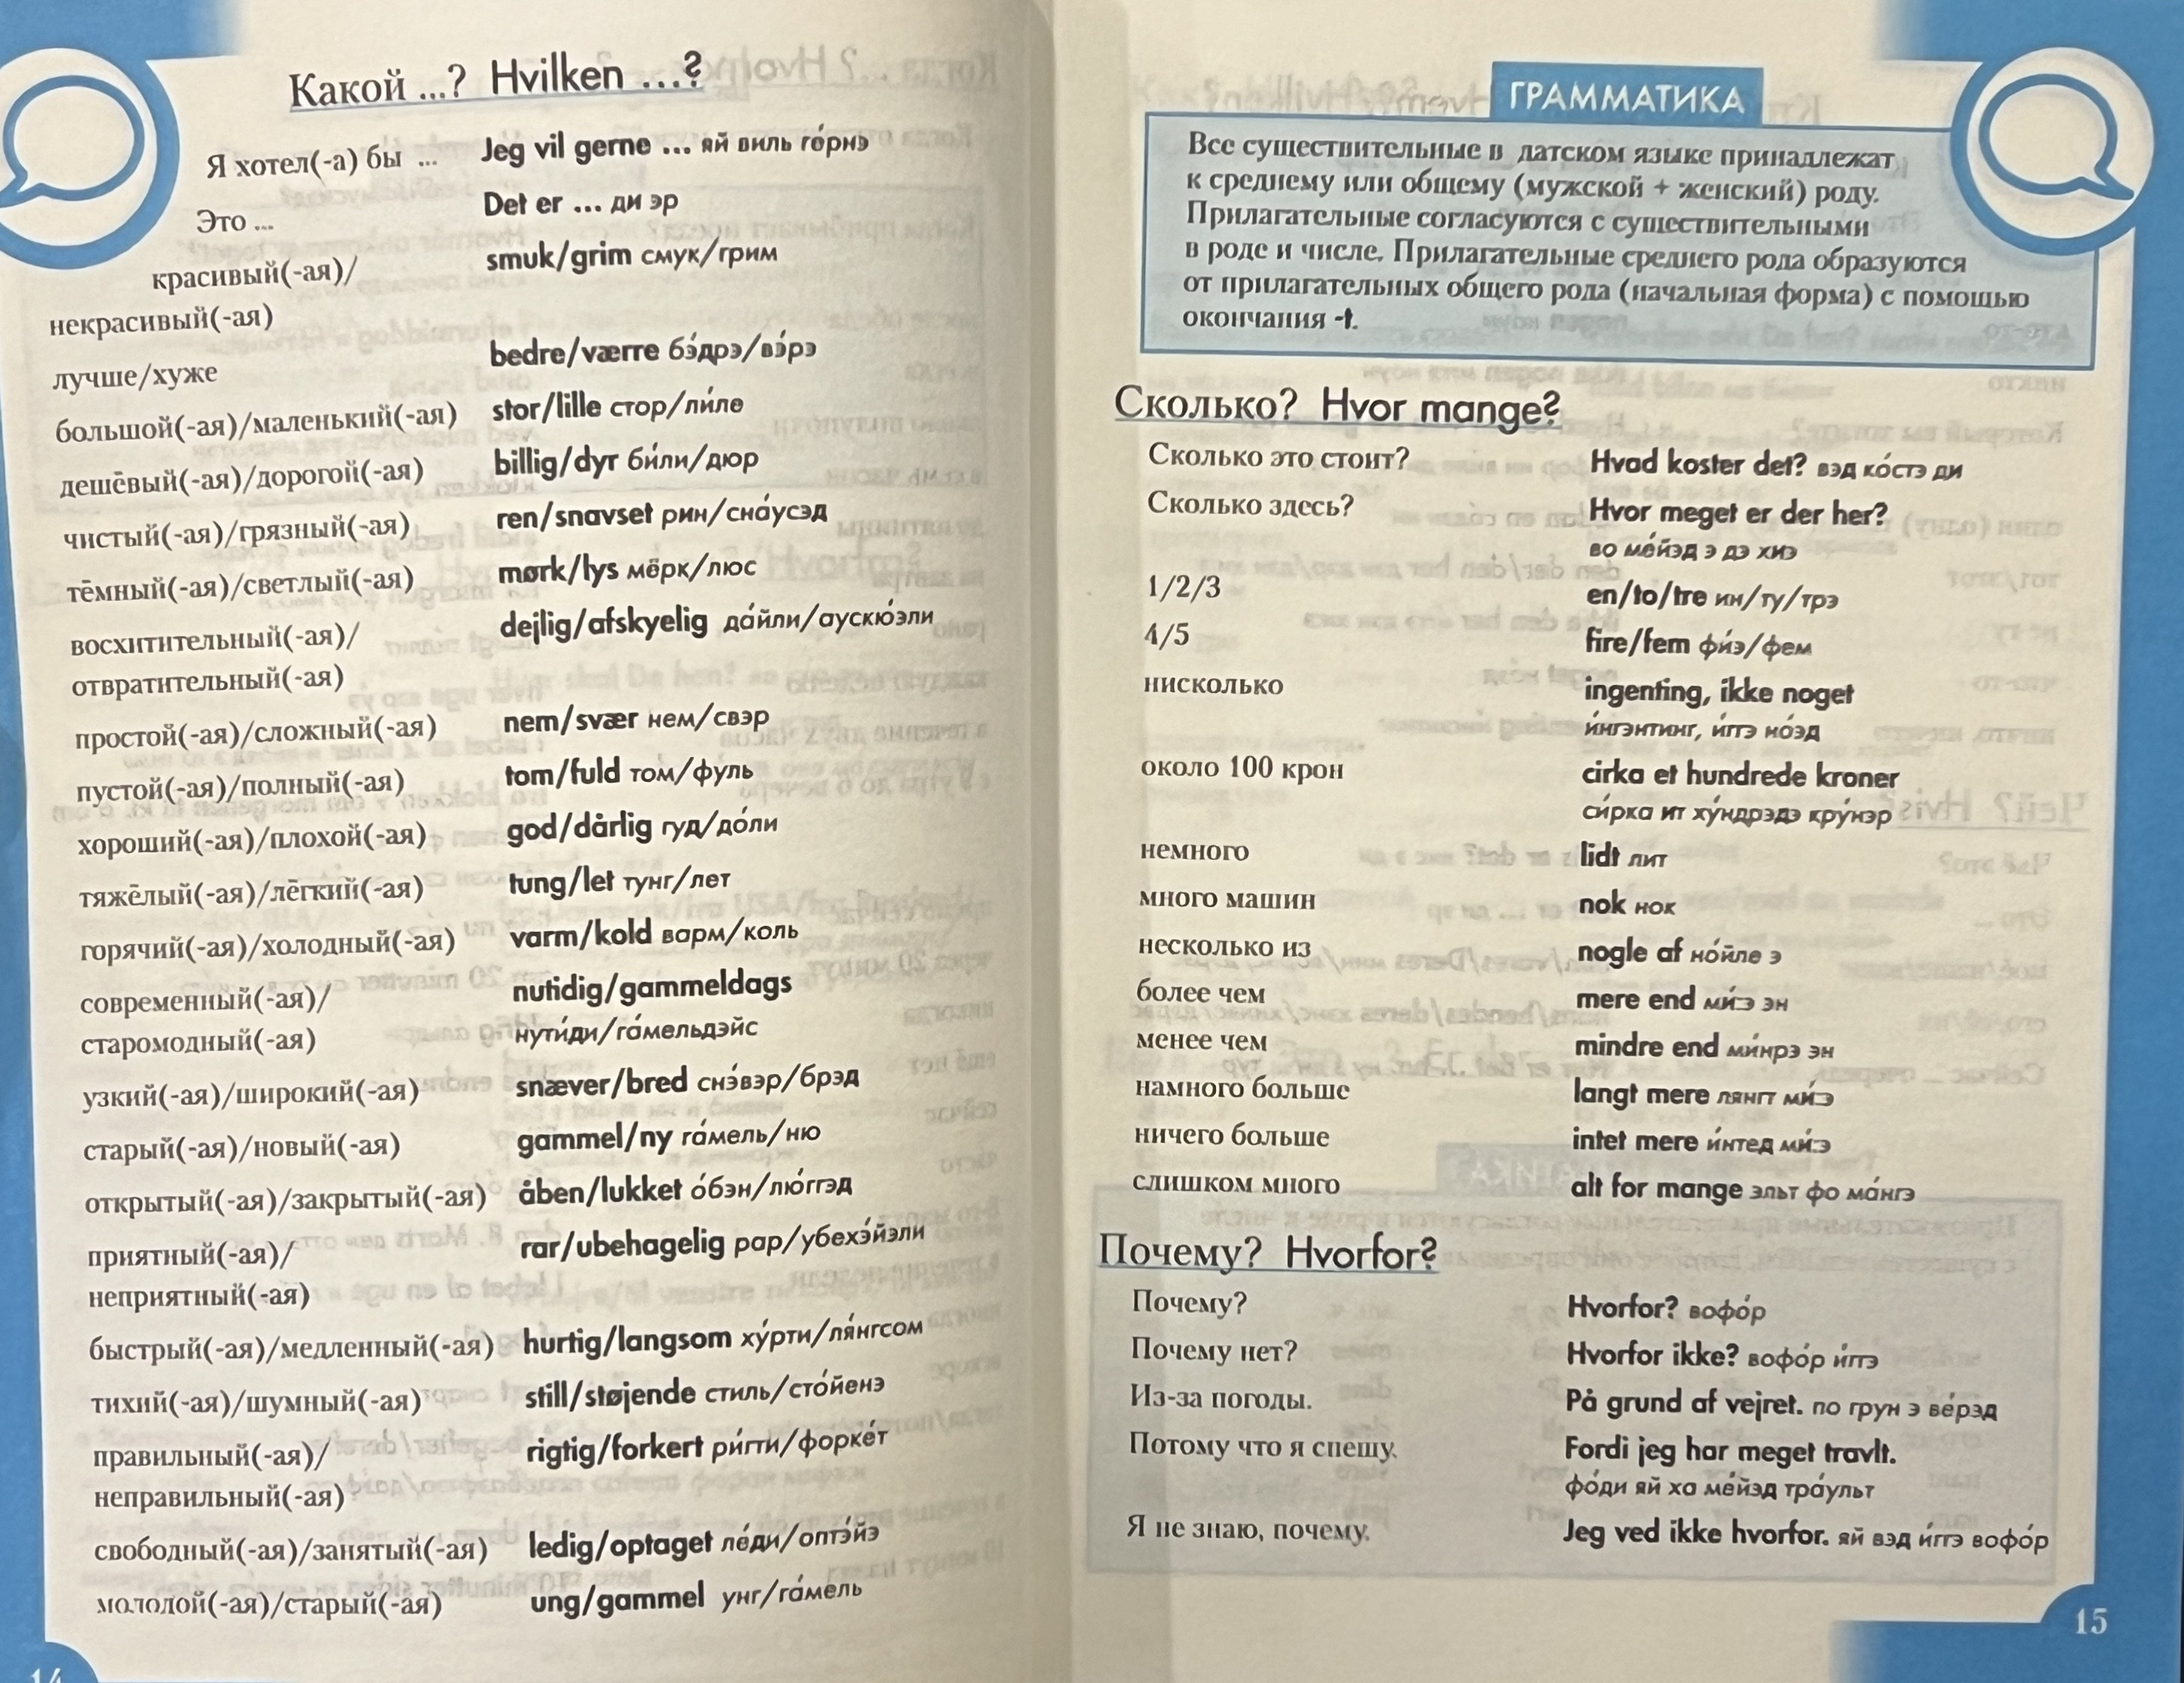 Какой ...? Hvilken ...?
Я хотел(-а) бы ... Jeg vil gerne ... яй виль го́рнэ
Это ... Det er ... ди эр
красивый(-ая)/ smuk/grim смук/грим
некрасивый(-ая)
лучше/хуже bedre/værre бэ́дрэ/вэ́рэ
большой(-ая)/маленький(-ая) stor/lille стор/ли́ле
дешёвый(-ая)/дорогой(-ая) billig/dyr би́ли/дюр
чистый(-ая)/грязный(-ая) ren/snavset рин/сна́усэд
тёмный(-ая)/светлый(-ая) mørk/lys мёрк/люс
восхитительный(-ая)/ dejlig/afskyelig да́йли/аускю́эли
отвратительный(-ая)
простой(-ая)/сложный(-ая) nem/svær нем/свэр
пустой(-ая)/полный(-ая) tom/fuld том/фуль
хороший(-ая)/плохой(-ая) god/dårlig гуд/до́ли
тяжёлый(-ая)/лёгкий(-ая) tung/let тунг/лет
горячий(-ая)/холодный(-ая) varm/kold варм/коль
современный(-ая)/ nutidig/gammeldags
старомодный(-ая) нути́ди/га́мельдэйс
узкий(-ая)/широкий(-ая) snæver/bred снэ́вэр/брэд
старый(-ая)/новый(-ая) gammel/ny га́мель/ню
открытый(-ая)/закрытый(-ая) åben/lukket о́бэн/лю́ггэд
приятный(-ая)/ rar/ubehagelig рар/убехэ́йэли
неприятный(-ая)
быстрый(-ая)/медленный(-ая) hurtig/langsom ху́рти/ля́нгсом
тихий(-ая)/шумный(-ая) still/støjende стиль/сто́йенэ
правильный(-ая)/ rigtig/forkert ри́гти/форке́т
неправильный(-ая)
свободный(-ая)/занятый(-ая) ledig/optaget ле́ди/оптэ́йэ
молодой(-ая)/старый(-ая) ung/gammel унг/га́мель
14
ГРАММАТИКА
Все существительные в датском языке принадлежат
к среднему или общему (мужской + женский) роду.
Прилагательные согласуются с существительными
в роде и числе. Прилагательные среднего рода образуются
от прилагательных общего рода (начальная форма) с помощью
окончания -t.
Сколько? Hvor mange?
Сколько это стоит? Hvad koster det? вэд ко́стэ ди
Сколько здесь? Hvor meget er der her?
во ме́йэд э дэ хиэ
1/2/3 en/to/tre ин/ту/трэ
4/5 fire/fem фи́э/фем
нисколько ingenting, ikke noget
и́нгэнтинг, и́ггэ но́эд
около 100 крон cirka et hundrede kroner
си́рка ит ху́ндрэдэ кру́нэр
немного lidt лит
много машин nok нок
несколько из nogle af но́йле э
более чем mere end ми́э эн
менее чем mindre end ми́нрэ эн
намного больше langt mere лянгт ми́э
ничего больше intet mere и́нтед ми́э
слишком много alt for mange эльт фо ма́нгэ
Почему? Hvorfor?
Почему? Hvorfor? вофо́р
Почему нет? Hvorfor ikke? вофо́р и́ггэ
Из-за погоды. På grund af vejret. по грун э ве́рэд
Потому что я спешу. Fordi jeg har meget travlt.
фо́ди яй ха ме́йэд тра́ульт
Я не знаю, почему. Jeg ved ikke hvorfor. яй вэд и́ггэ вофо́р
15